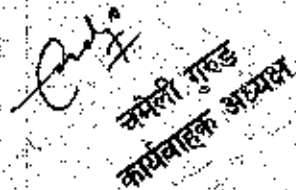 चमेली गुरुङ
कार्यवाहक अध्यक्ष